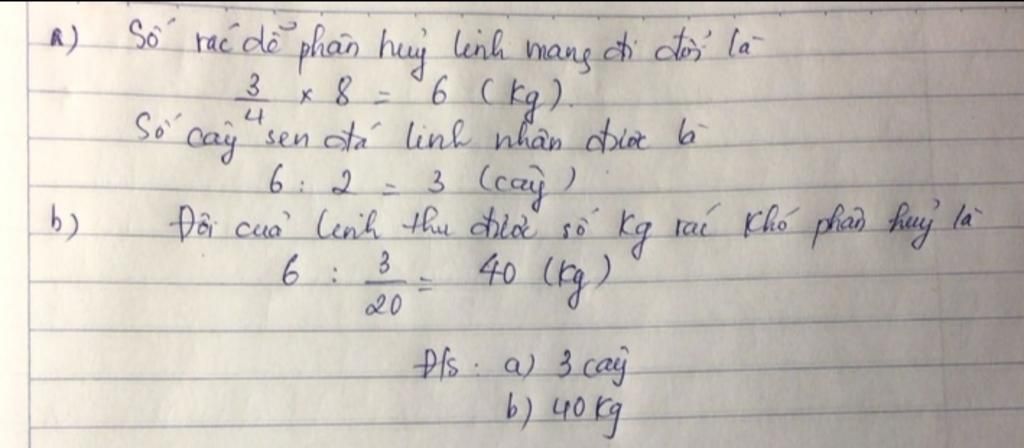 a) Số rác dễ phân huỷ Linh mang đi đổi là
3/4 × 8 = 6 (kg).
Số cây sen đá Linh nhận được là
6 : 2 = 3 (cây)
b) Đội của Linh thu được số kg rác khó phân huỷ là
6 : 3/20 = 40 (kg)
Đ/s : a) 3 cây
b) 40 kg